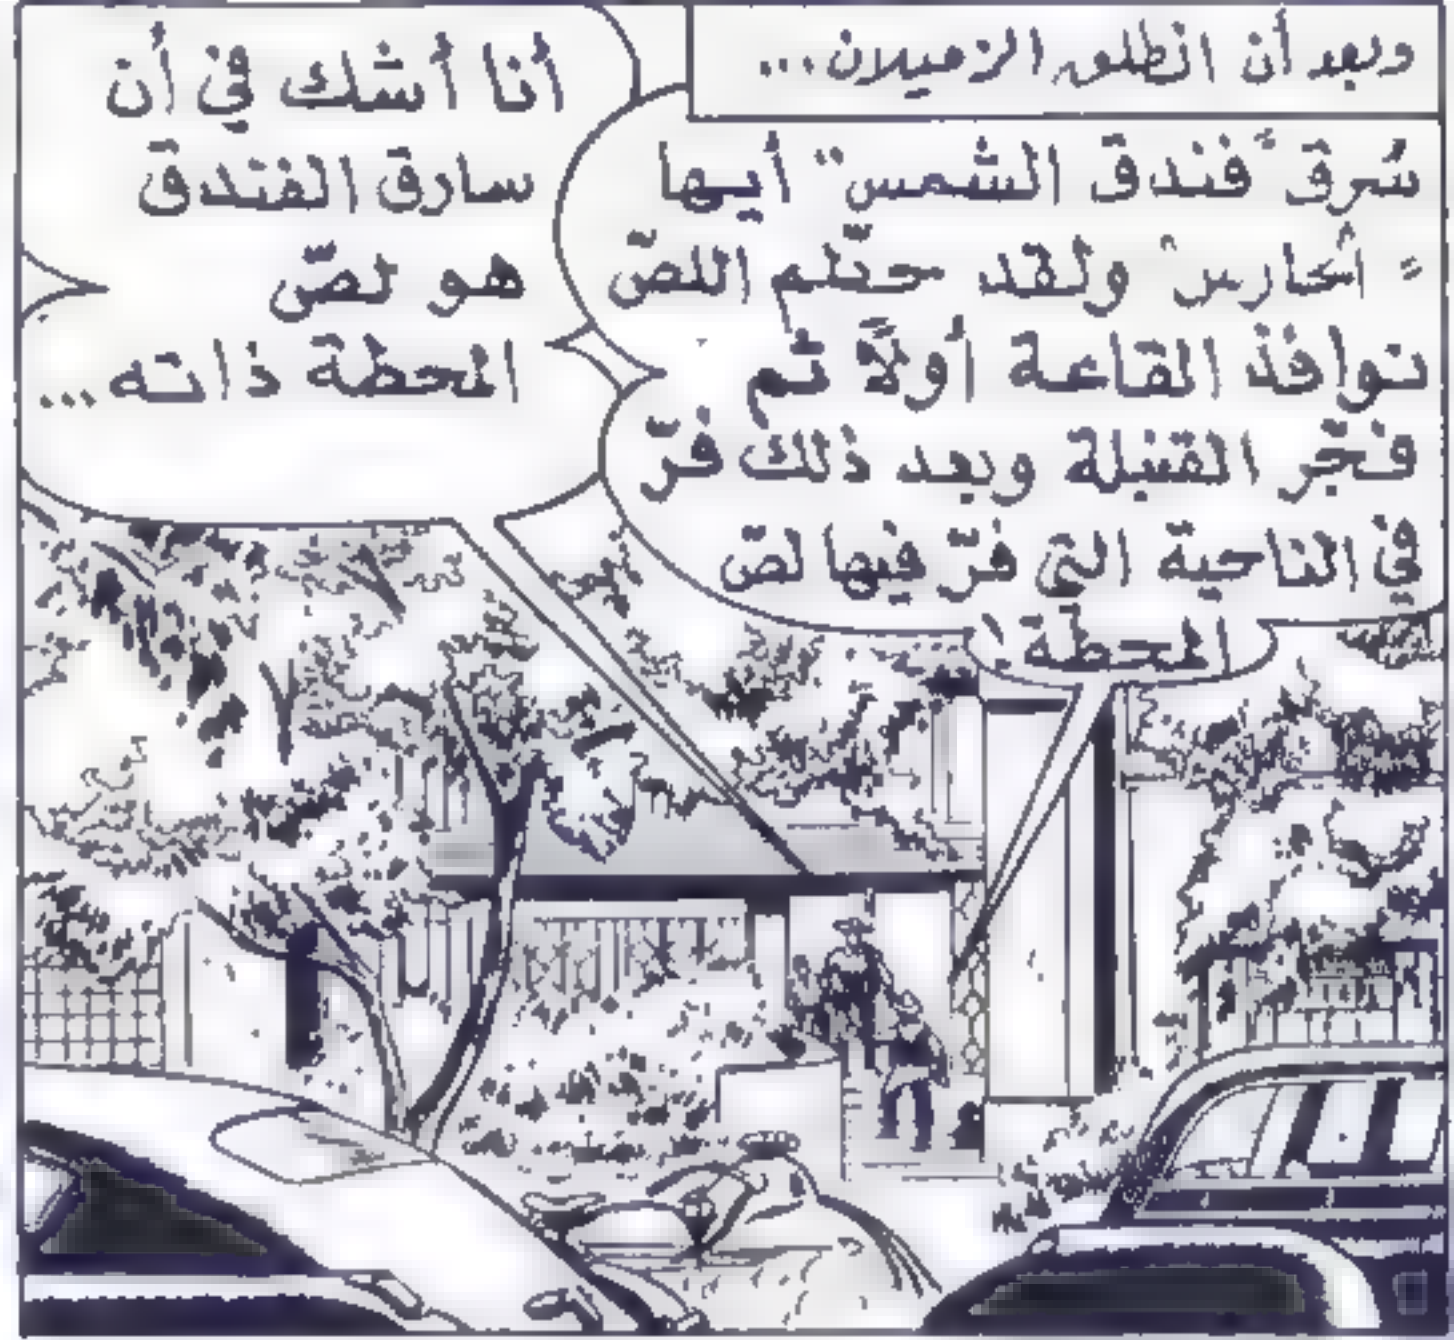 وبعد أن انطلق الزميلان...
سُرق "فندق الشمس" أيها
"الحارس" ولقد حطّم اللصّ
نوافذ القاعة أولاً ثم
فجّر القنبلة وبعد ذلك فرّ
في الناحية التي فرّ فيها لصّ
المحطّة!
أنا أشك في أن
سارق الفندق
هو لصّ
المحطة ذاته...